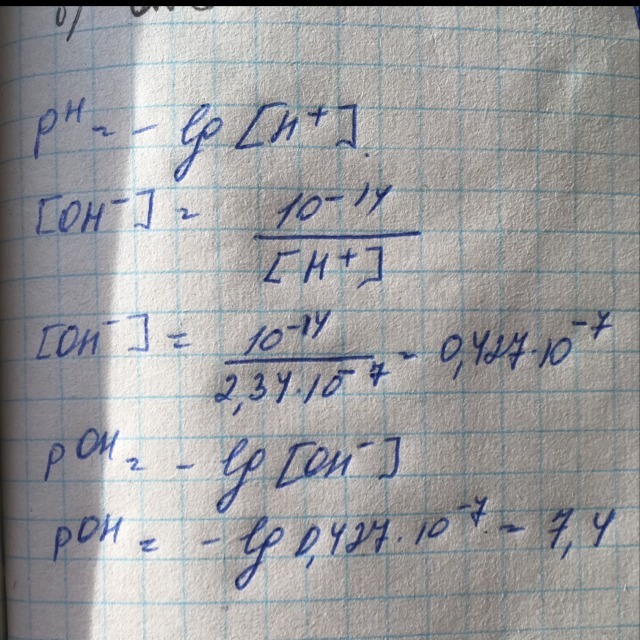 б)
pH = - lg [H⁺].
[OH⁻] = 10⁻¹⁴ / [H⁺]
[OH⁻] = 10⁻¹⁴ / 2,34·10⁻⁷ = 0,427·10⁻⁷
pOH = - lg [OH⁻]
pOH = - lg 0,427·10⁻⁷ = 7,4